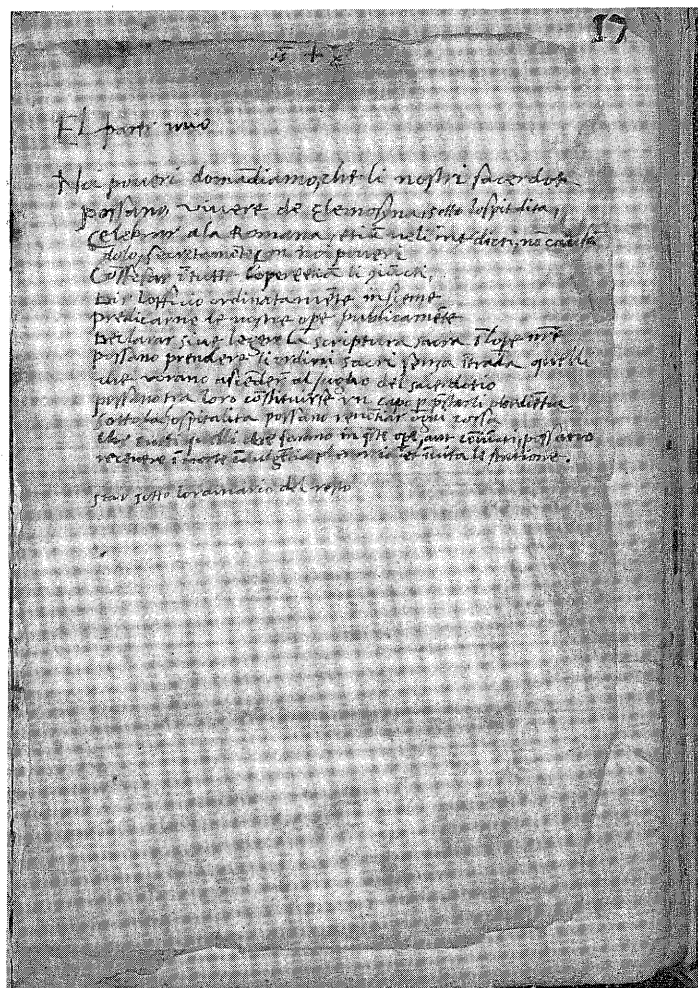 17
+
El parer mio
Noi poveri domādiamo, che li nostri sacerdoti
possano vivere de elemosina, sotto lospitalita,
Celebrar a la Romana, etiā neli interdicti, nō
dolo, secretamēte con noi poveri
Cōfessar ī tutte lopere etiā li
Dir lofficio ordinatamēte insieme
Predicarne le nostre ope publicamēte
Declarar sive legere la scriptura sacra ī lope nr̄e
possano prendere li ordini sacri senza strada quelli
che vorano ascender al del sacerdotio
possano tra loro costituirse un capo p obedientia
sotto la hospitalita possano renūtiar ogni cossa
tutti quelli che sarano in q̄ste ope, possano
recevere ī morte et ī vita le
star sotto lordinario del resto